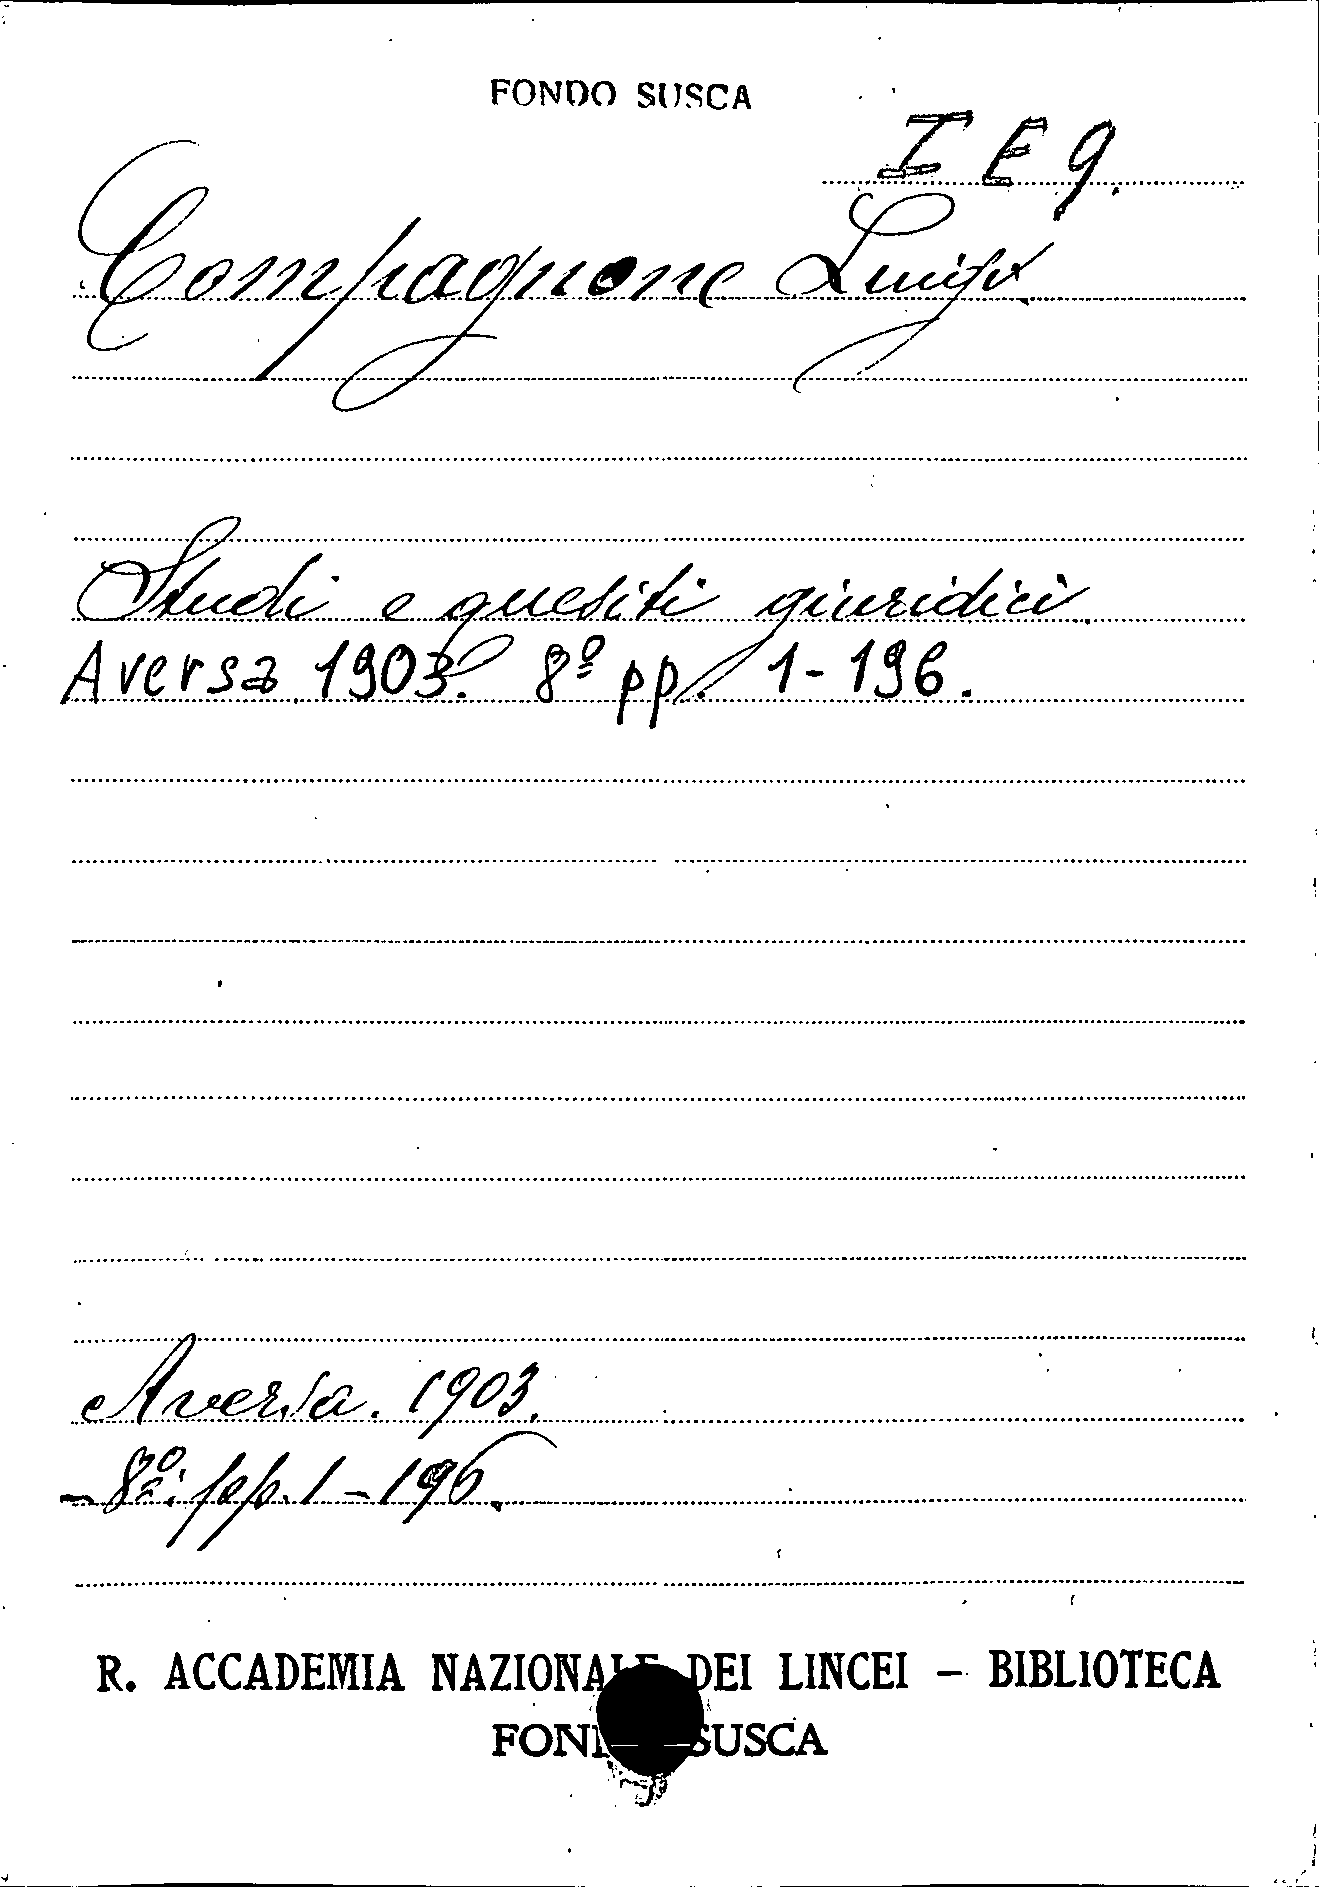 FONDO SUSCA
I E 9.
Compagnone Luigi
Studi e quesiti giuridici.
Aversa 1903. 8º pp. 1-196.
Aversa. 1903.
- 8º: pp. 1-196.
R. ACCADEMIA NAZIONALE DEI LINCEI - BIBLIOTECA
FONDO SUSCA